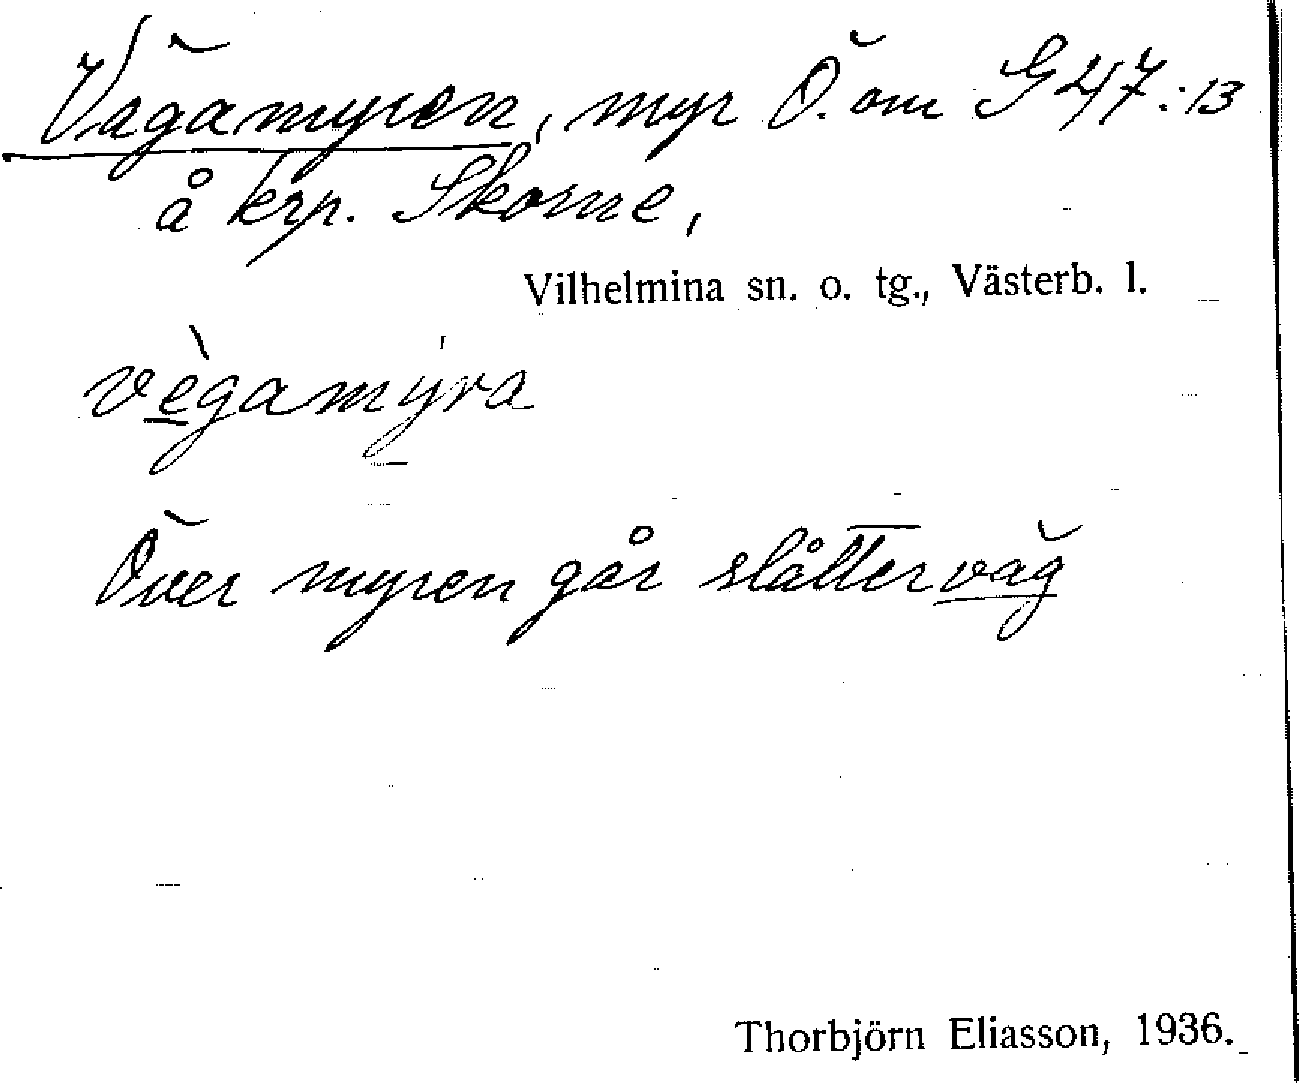 Vägamyren, myr Ö. om G47:13
å krp. Skome,
Vilhelmina sn. o. tg., Västerb. l.
vègamýra
Över myren går slåtterväg
Thorbjörn Eliasson, 1936.